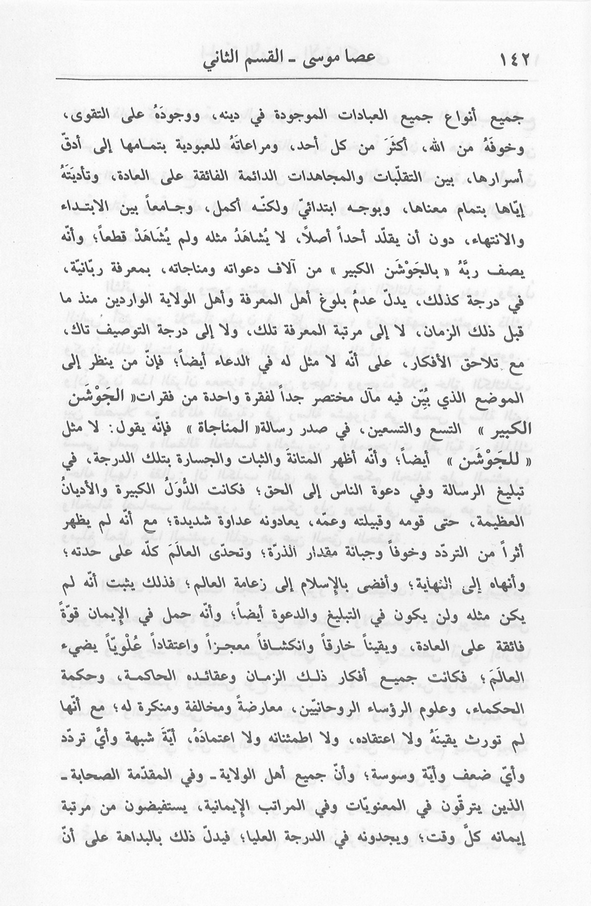 ١٤٢ عصا موسى - القسم الثاني
جميع أنواع جميع العبادات الموجودة في دينه، ووجودَهُ على التقوى،
وخوفَهُ من الله، أكثَرَ من كل أحد، ومراعاتهُ للعبودية بتمامها إلى أدقّ
أسرارها، بين التقلّبات والمجاهدات الدائمة الفائقة على العادة، وتأديَتَهُ
إيّاها بتمام معناها، وبوجه ابتدائيّ ولكنّه أكمل، وجامعاً بين الابتداء
والانتهاء، دون أن يقلّد أحداً أصلاً، لا يُشاهَدُ مثله ولم يُشَاهَدْ قطعاً؛ وأنّه
يصف ربَّهُ « بالجَوْشَن الكبير » من آلاف دعواته ومناجاته، بمعرفة ربّانيّة،
في درجة كذلك، يدلّ عدمُ بلوغ أهل المعرفة وأهل الولاية الواردين منذ ما
قبل ذلك الزمان، لا إلى مرتبة المعرفة تلك، ولا إلى درجة التوصيف تاك،
مع تلاحق الأفكار، على أنّه لا مثل له في الدعاء أيضاً؛ فإنّ من ينظر إلى
الموضع الذي بُيّن فيه مآل مختصر جداً لفقرة واحدة من فقرات« الجَوْشَن
الكبير » التسع والتسعين، في صدر رسالة« المناجاة » فإنّه يقول: لا مثل
« للجَوْشَن » أيضاً؛ وأنّه أظهر المتانةَ والثبات والجسارة بتلك الدرجة، في
تبليغ الرسالة وفي دعوة الناس إلى الحق؛ فكانت الدُّوَلُ الكبيرة والأديانُ
العظيمة، حتى قومه وقبيلته وعمّه، يعادونه عداوة شديدة؛ مع أنّه لم يظهر
أثراً من التردّد وخوفاً وجبانة مقدار الذرّة؛ وتحدّى العالَمَ كلّه على حدته؛
وأنهاه إلى النهاية؛ وأفضى بالإسلام إلى زعامة العالم؛ فذلك يثبت أنّه لم
يكن مثله ولن يكون في التبليغ والدعوة أيضاً؛ وأنّه حمل في الإيمان قوّةً
فائقة على العادة، ويقيناً خارقاً وانكشافاً معجزاً واعتقاداً عُلْويّاً يضيء
العالَمَ؛ فكانت جميع أفكار ذلك الزمان وعقائده الحاكمة، وحكمة
الحكماء، وعلوم الرؤساء الروحانيّين، معارضةً ومخالفة ومنكرة له؛ مع أنّها
لم تورث يقينَهُ ولا اعتقاده، ولا اطمئنانه ولا اعتمادَهُ، أيّةَ شبهة وأيَّ تردّد
وأيّ ضعف وأيّة وسوسة؛ وأنّ جميع أهل الولاية- وفي المقدّمة الصحابة-
الذين يترقّون في المعنويّات وفي المراتب الإيمانية، يستفيضون من مرتبة
إيمانه كلَّ وقت؛ ويجدونه في الدرجة العليا؛ فيدلّ ذلك بالبداهة على أنّ